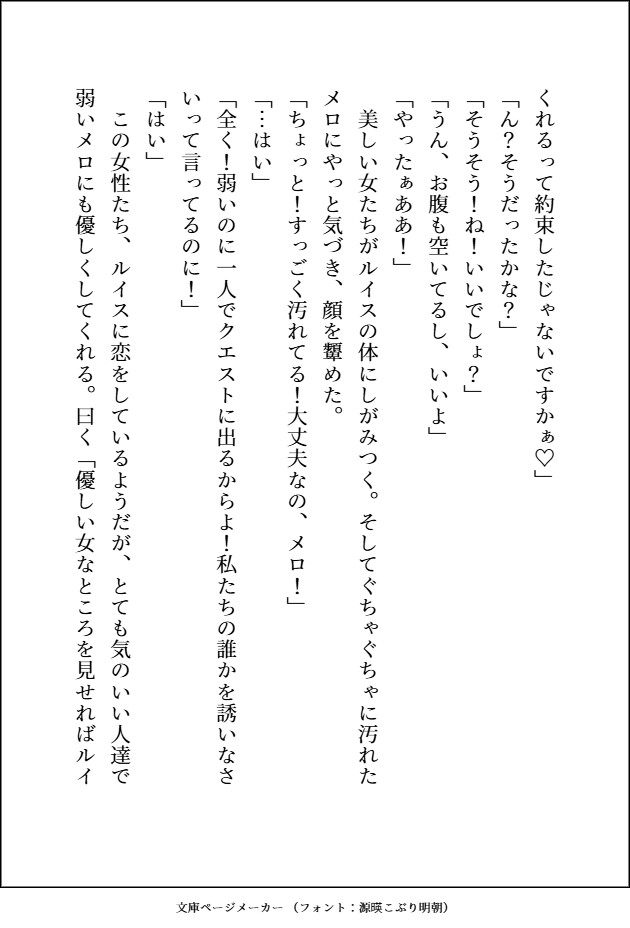 くれるって約束したじゃないですかぁ♡」
「ん？そうだったかな？」
「そうそう！ね！いいでしょ？」
「うん、お腹も空いてるし、いいよ」
「やったぁああ！」
　美しい女たちがルイスの体にしがみつく。そしてぐちゃぐちゃに汚れた
メロにやっと気づき、顔を顰めた。
「ちょっと！すっごく汚れてる！大丈夫なの、メロ！」
「…はい」
「全く！弱いのに一人でクエストに出るからよ！私たちの誰かを誘いなさ
いって言ってるのに！」
「はい」
　この女性たち、ルイスに恋をしているようだが、とても気のいい人達で
弱いメロにも優しくしてくれる。曰く「優しい女なところを見せればルイ
文庫ページメーカー（フォント：源暎こぶり明朝）